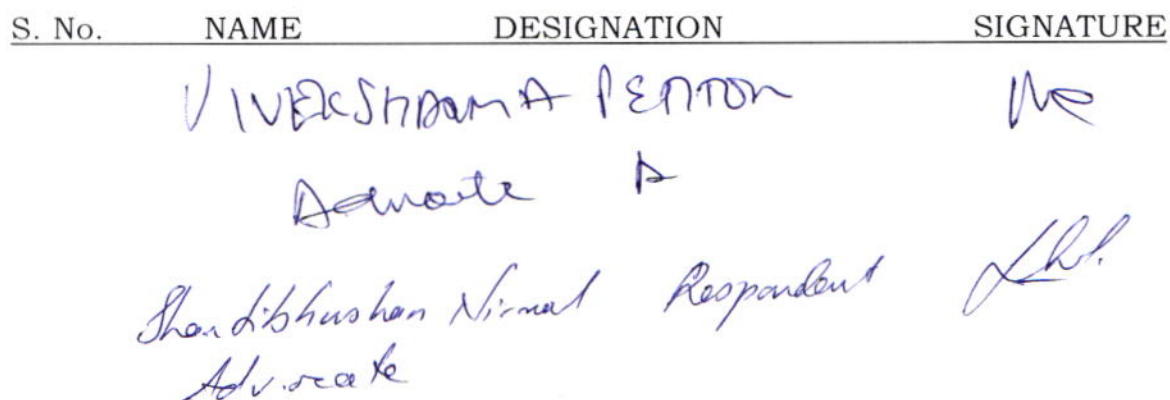 S. No. NAME DESIGNATION SIGNATURE
VIVEK SHARMA
Advocate
Shantibhushan Nirmal Respondent
Advocate